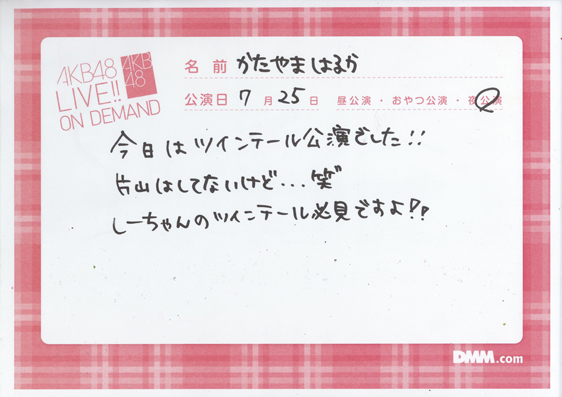 AKB48
LIVE!!
ON DEMAND
AKB
48
名 前 かたやまはるか
公演日 7 月 25 日 昼公演・おやつ公演・夜公演
今日はツインテール公演でした!!
片山はしてないけど...笑
しーちゃんのツインテール必見ですよ!?
DMM.com